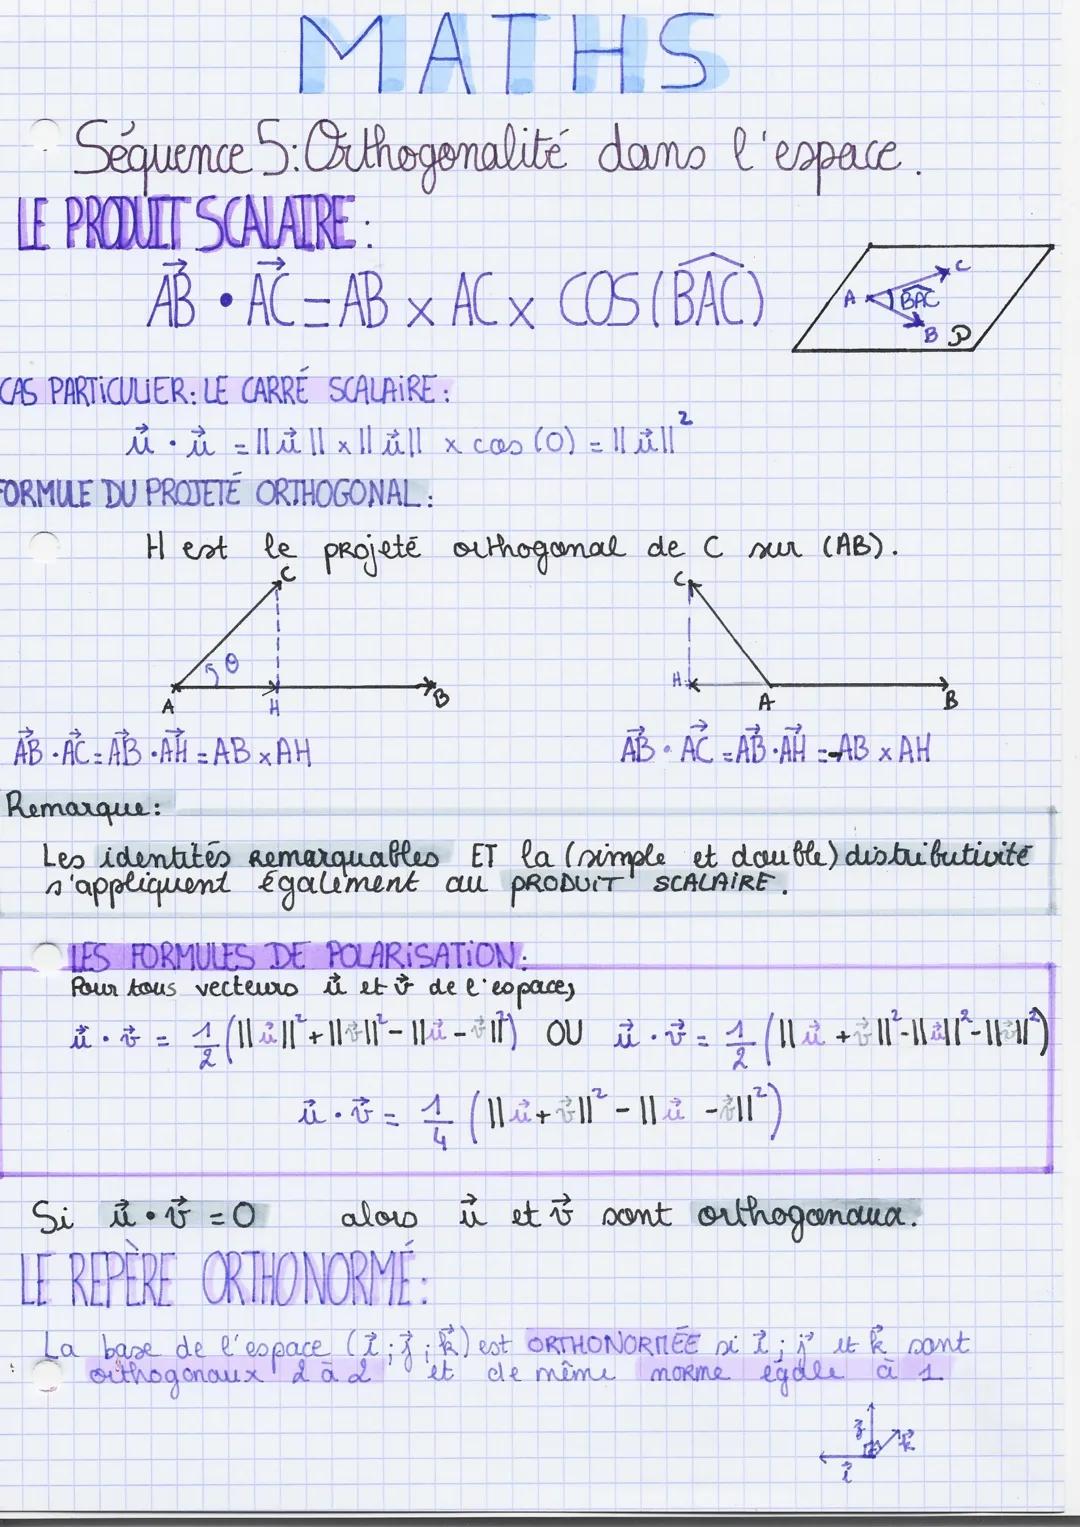 MATHS
Séquence 5: Orthogonalité dans l'espace.
LE PRODUIT SCALAIRE :
A⃗B⃗ • A⃗C⃗ = AB x AC x COS (B̂AC)
A BAC C B P
CAS PARTICULIER: LE CARRÉ SCALAIRE :
u⃗ · u⃗ = ||u⃗|| x ||u⃗|| x cos (0) = ||u⃗||²
FORMULE DU PROJETÉ ORTHOGONAL :
H est le projeté orthogonal de C sur (AB).
C C
θ
A H B H A B
A⃗B⃗ · A⃗C⃗ = A⃗B⃗ · A⃗H⃗ = AB x AH
A⃗B⃗ · A⃗C⃗ = A⃗B⃗ · A⃗H⃗ = -AB x AH
Remarque :
Les identités remarquables ET la (simple et double) distributivité
s'appliquent également au PRODUIT SCALAIRE.
LES FORMULES DE POLARISATION :
Pour tous vecteurs u⃗ et v⃗ de l'espace,
u⃗ · v⃗ = 1/2 (||u⃗||² + ||v⃗||² - ||u⃗ - v⃗||²) OU u⃗ · v⃗ = 1/2 (||u⃗ + v⃗||² - ||u⃗||² - ||v⃗||²)
u⃗ · v⃗ = 1/4 (||u⃗ + v⃗||² - ||u⃗ - v⃗||²)
Si u⃗ • v⃗ = 0 alors u⃗ et v⃗ sont orthogonaux.
LE REPÈRE ORTHONORMÉ :
La base de l'espace (i⃗ ; j⃗ ; k⃗) est ORTHONORMÉE si i⃗ ; j⃗ et k⃗ sont
orthogonaux 2 à 2 et de même norme égale à 1
j⃗ k⃗
i⃗